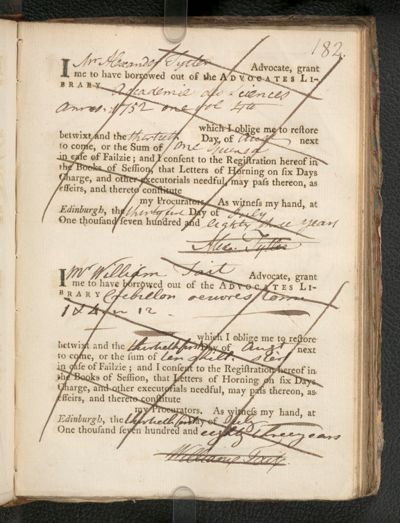 182.
I Mr Alexander Tytler Advocate, grant
me to have borrowed out of the ADVOCATES LI-
BRARY Academie des Sciences
Annee 1752 one vol 4to
which I oblige me to reſtore
betwixt and the thirtieth Day, of Augt next
to come, or the Sum of One Guinea
in caſe of Failzie; and I conſent to the Regiſtration hereof in
the Books of Seſſion, that Letters of Horning on ſix Days
Charge, and other executorials needful, may paſs thereon, as
effeirs, and thereto conſtitute
my Procurators. As witneſs my hand, at
Edinburgh, the Day of July
One thouſand ſeven hundred and eighty three years
Alex. Tytler
I Mr William Tait Advocate, grant
me to have borrowed out of the ADVOCATES LI-
BRARY Crebillon oeuvres tome
1 & 4 in 12
which I oblige me to reſtore
betwixt and the Day of Augt next
to come, or the ſum of ten ſhill. ster
in caſe of Failzie; and I conſent to the Regiſtration hereof in
the Books of Seſſion, that Letters of Horning on ſix Days
Charge, and other executorials needful, may paſs thereon, as
effeirs, and thereto conſtitute
my Procurators. As witneſs my hand, at
Edinburgh, the day of July
One thouſand ſeven hundred and eighty three years
William Tait